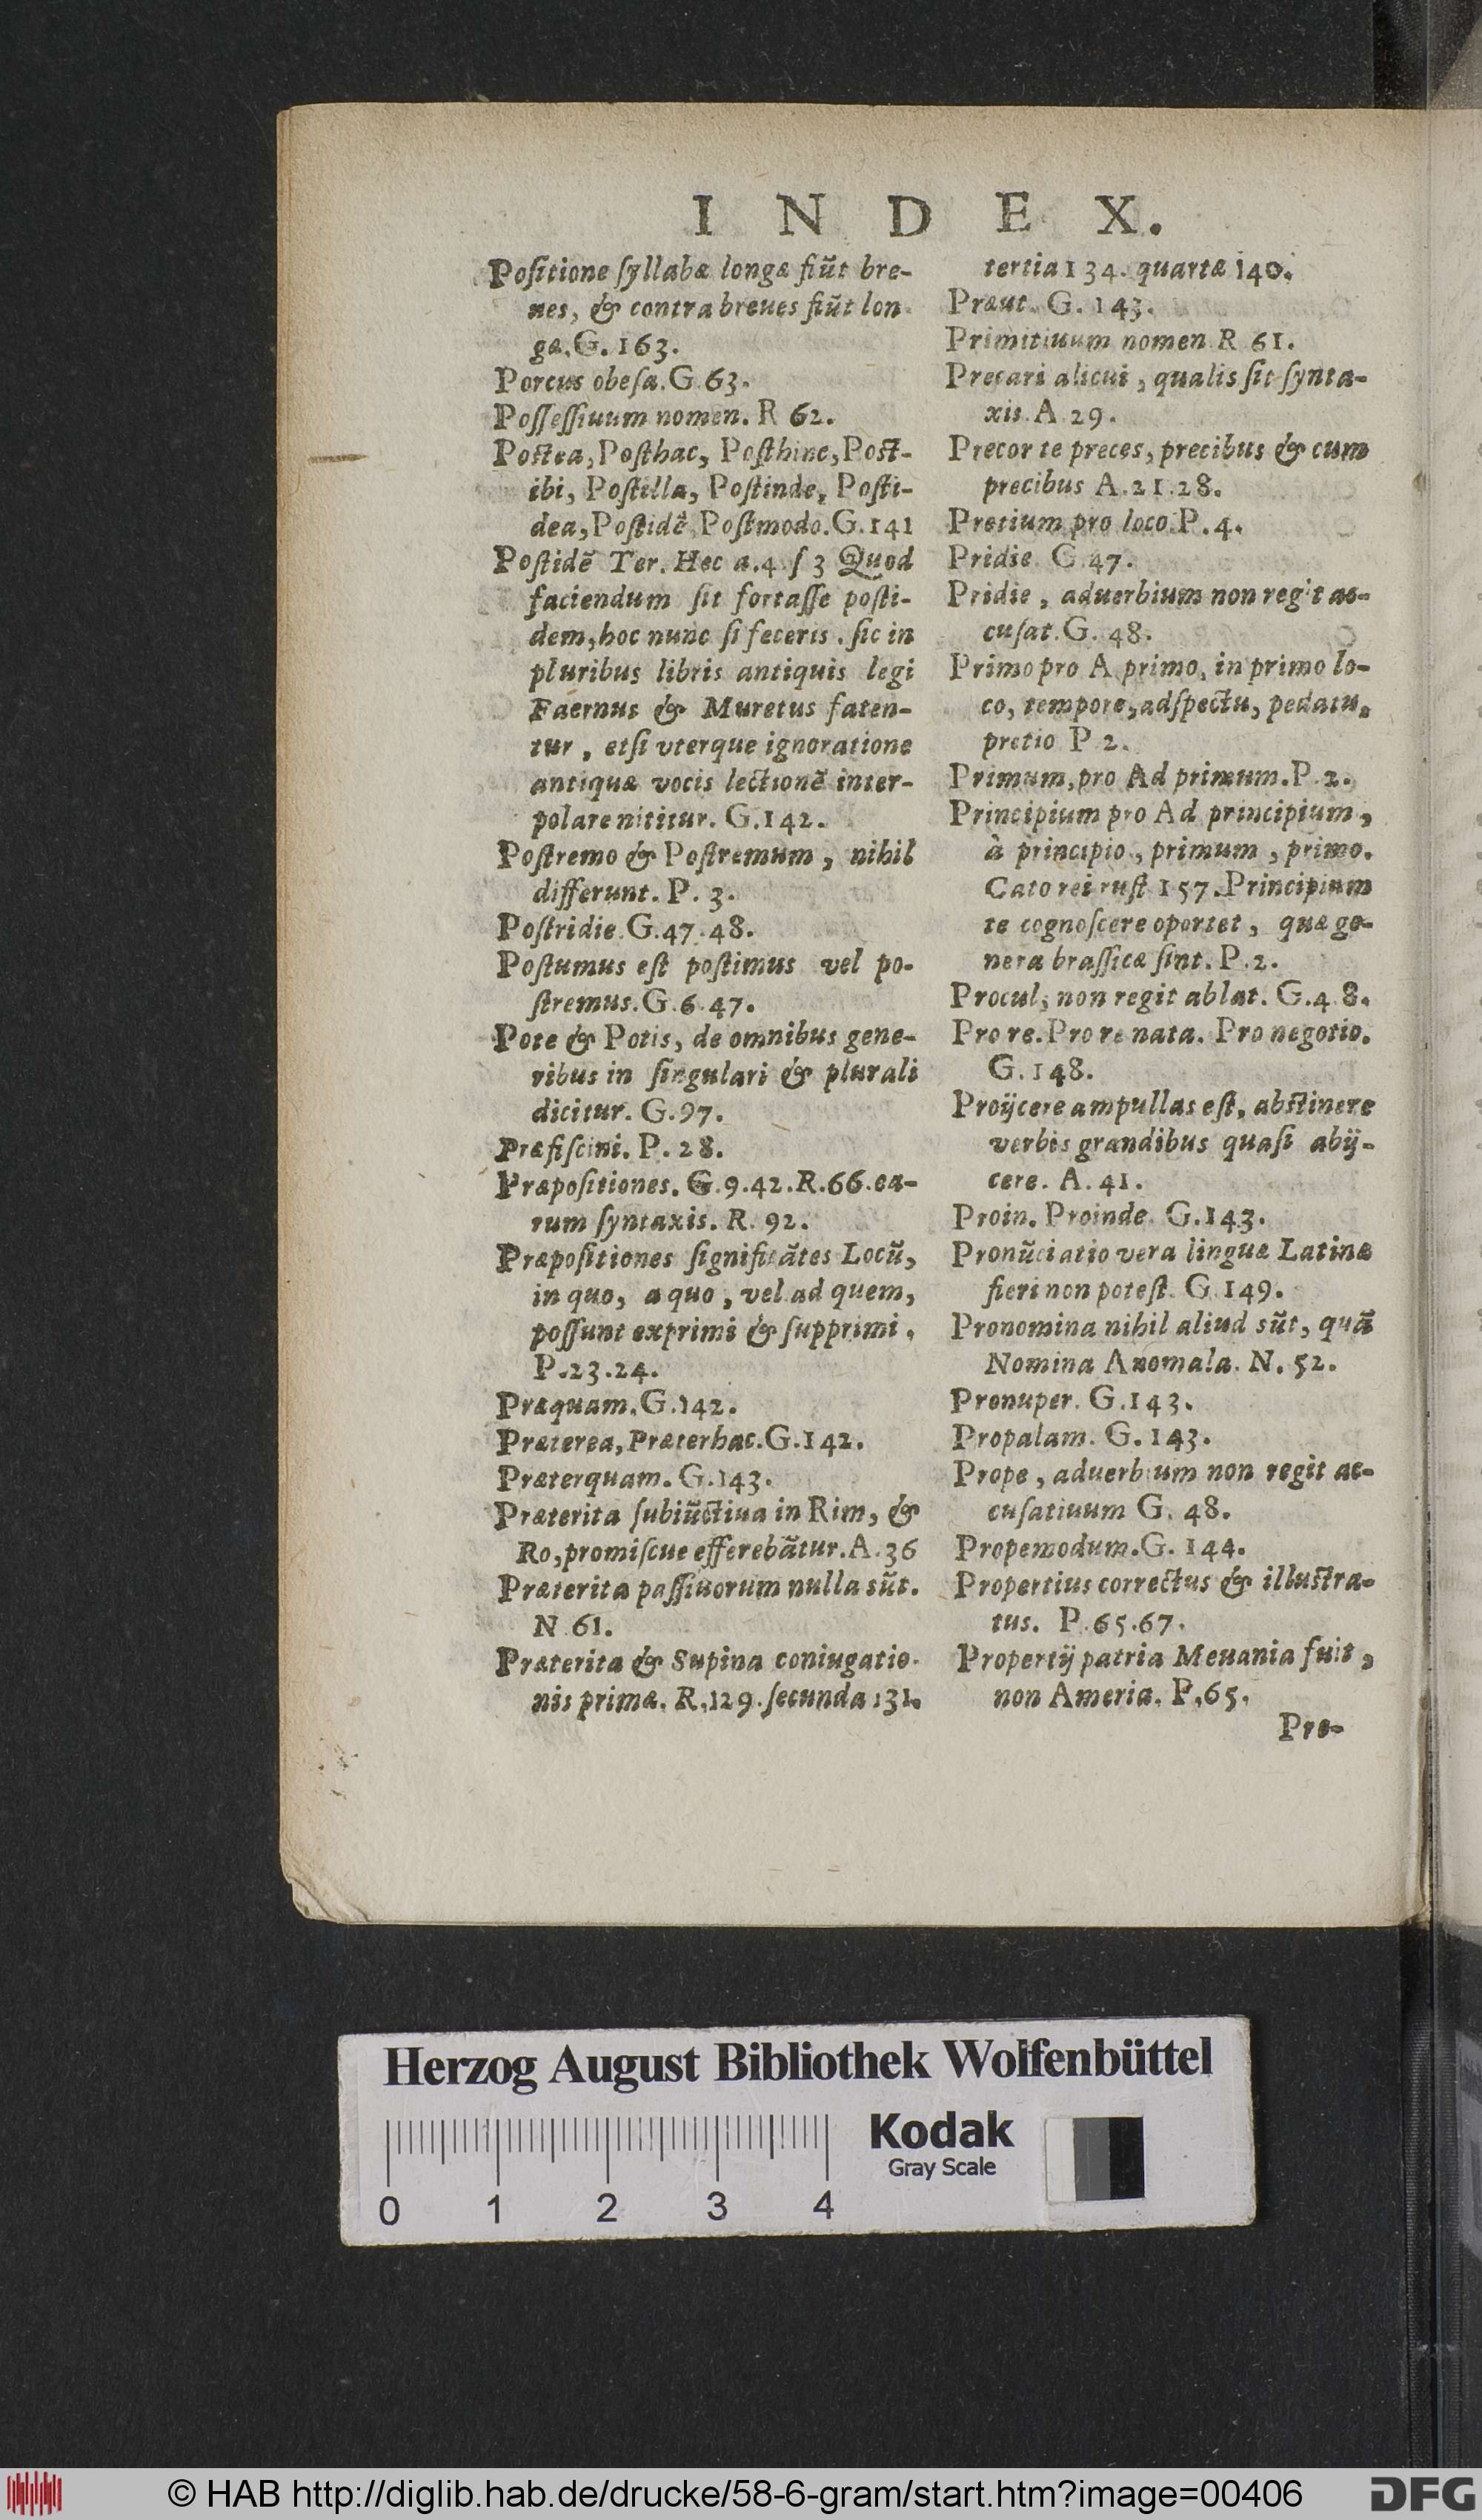 INDEX.
Poſitione ſyllabæ longæ fiũt bre-
ues, & contra breues fiũt lon
gæ. G. 163.
Porcus obeſa. G. 63.
Poſſeſſiuum nomen. R 62.
Poſtea, Poſthac, Poſthinc, Poſt-
ibi, Poſtilla, Poſtinde, Poſti-
dea, Poſtidẽ, Poſtmodo. G. 141
Poſtidẽ Ter. Hec a. 4. ſ 3 Quod
faciendum ſit fortaſſe poſti-
dem, hoc nunc ſi feceris. ſic in
pluribus libris antiquis legi
Faernus & Muretus faten-
tur, etſi vterque ignoratione
antiquæ vocis lectionẽ inter-
polare nititur. G. 142.
Poſtremo & Poſtremum, nihil
differunt. P. 3.
Poſtridie. G. 47. 48.
Poſtumus eſt poſtimus vel po-
ſtremus. G. 6. 47.
Pote & Potis, de omnibus gene-
ribus in ſingulari & plurali
dicitur. G. 97.
Præfiſcini. P. 28.
Præpoſitiones. G. 9. 42. R. 66. ea-
rum ſyntaxis. R. 92.
Præpoſitiones ſignificãtes Locũ,
in quo, a quo, vel ad quem,
poſſunt exprimi & ſupprimi.
P. 23. 24.
Præquam. G. 142.
Præterea, Præterhac. G. 142.
Præterquam. G. 143.
Præterita ſubiũctiua in Rim, &
Ro, promiſcue efferebãtur. A. 36
Præterita paſſiuorum nulla sũt.
N. 61.
Præterita & Supina coniugatio-
nis primæ. R. 129. ſecunda 131.
tertia 134. quartæ 140.
Præut. G. 143.
Primitiuum nomen R 61.
Precari alicui, qualis ſit ſynta-
xis. A. 29.
Precor te preces, precibus & cum
precibus A. 21. 28.
Pretium pro loco. P. 4.
Pridie. G. 47.
Pridie, aduerbium non regit ac-
cuſat. G. 48.
Primo pro A primo, in primo lo-
co, tempore, adſpectu, pedatu,
pretio P 2.
Primum, pro Ad primum. P. 2.
Principium pro Ad principium,
à principio, primum, primo.
Cato rei ruſt 157. Principium
te cognoſcere oportet, quæ ge-
nera braſſicæ ſint. P. 2.
Procul, non regit ablat. G. 48.
Pro re. Pro re nata. Pro negotio.
G. 148.
Proijcere ampullas eſt, abſtinere
verbis grandibus quaſi abij-
cere. A. 41.
Proin. Proinde. G. 143.
Pronũciatio vera linguæ Latinæ
fieri non poteſt. G. 149.
Pronomina nihil aliud sũt, quã
Nomina Anomala. N. 52.
Pronuper. G. 143.
Propalam. G. 143.
Prope, aduerbium non regit ac-
cuſatiuum G. 48.
Propemodum. G. 144.
Propertius correctus & illuſtra-
tus. P. 65. 67.
Propertij patria Meuania fuit,
non Ameria. P. 65.
Pro-
Herzog August Bibliothek Wolfenbüttel
Kodak
Gray Scale
0 1 2 3 4
© HAB http://diglib.hab.de/drucke/58-6-gram/start.htm?image=00406
DFG